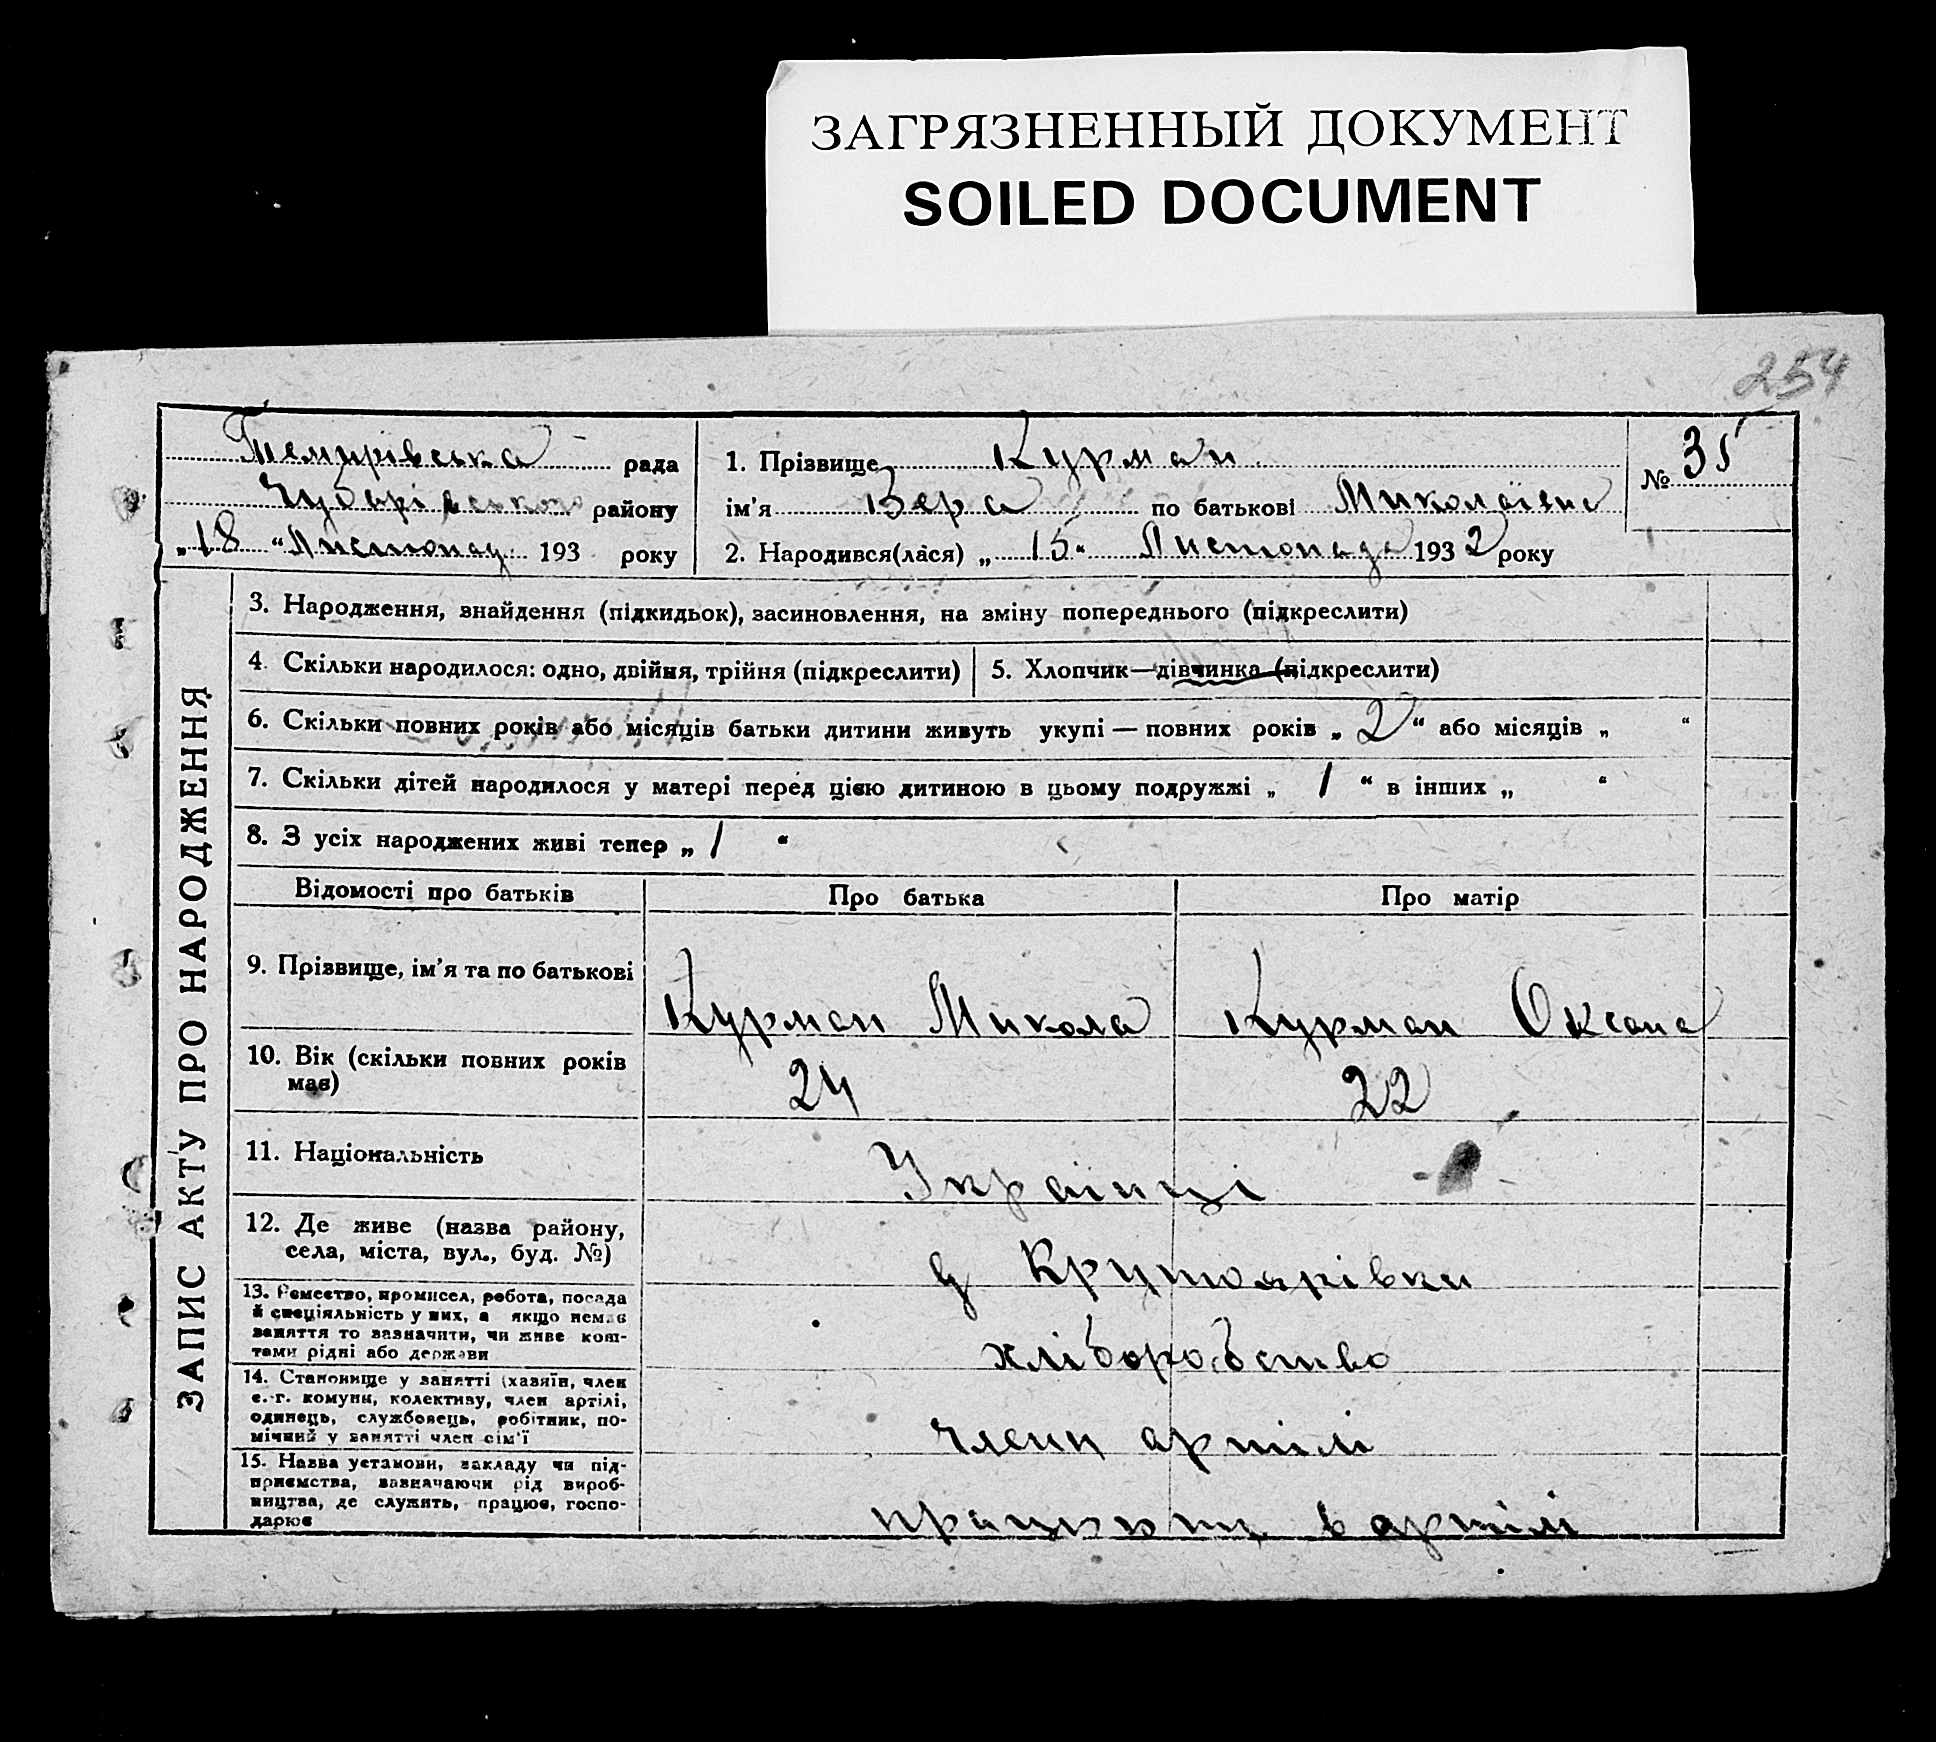 ЗАГРЯЗНЕННЫЙ ДОКУМЕНТ
SOILED DOCUMENT
254
Темирівська рада
Чубарівського району
„18 “ Листопад 193 року
1. Прізвище Курман
ім'я Вера по батькові Миколаївна
2. Народився(лася) „ 15 “ Листопада 1932 року
№ 35
ЗАПИС АКТУ ПРО НАРОДЖЕННЯ
3. Народження, знайдення (підкидьок), засиновлення, на зміну попереднього (підкреслити)
4. Скільки народилося: одно, двійня, трійня (підкреслити)
5. Хлопчик—дівчинка (підкреслити)
6. Скільки повних років або місяців батьки дитини живуть укупі — повних років „ 2 “ або місяців „ “
7. Скільки дітей народилося у матері перед цією дитиною в цьому подружжі „ 1 “ в інших „ “
8. З усіх народжених живі тепер „ 1 “
Відомості про батьків Про батька Про матір
9. Прізвище, ім'я та по батькові
Курман Микола Курман Оксана
10. Вік (скільки повних років
має)
24 22
11. Національність
Українці
12. Де живе (назва району,
села, міста, вул., буд. №)
Крутоярівки
13. Ремество, промисел, робота, посада
й спеціяльність у них, а якщо немає
заняття то зазначити, чи живе кош-
тами рідні або держави
хліборобство
14. Становище у занятті (хазяїн, член
с.-г. комуни, колективу, член артілі,
одинець, службовець, робітник, по-
мічний у занятті член сім'ї
члени артілі
15. Назва установи, закладу чи під-
приємства, зазначаючи рід вироб-
ництва, де служить, працює, госпо-
дарює
працюють в артілі